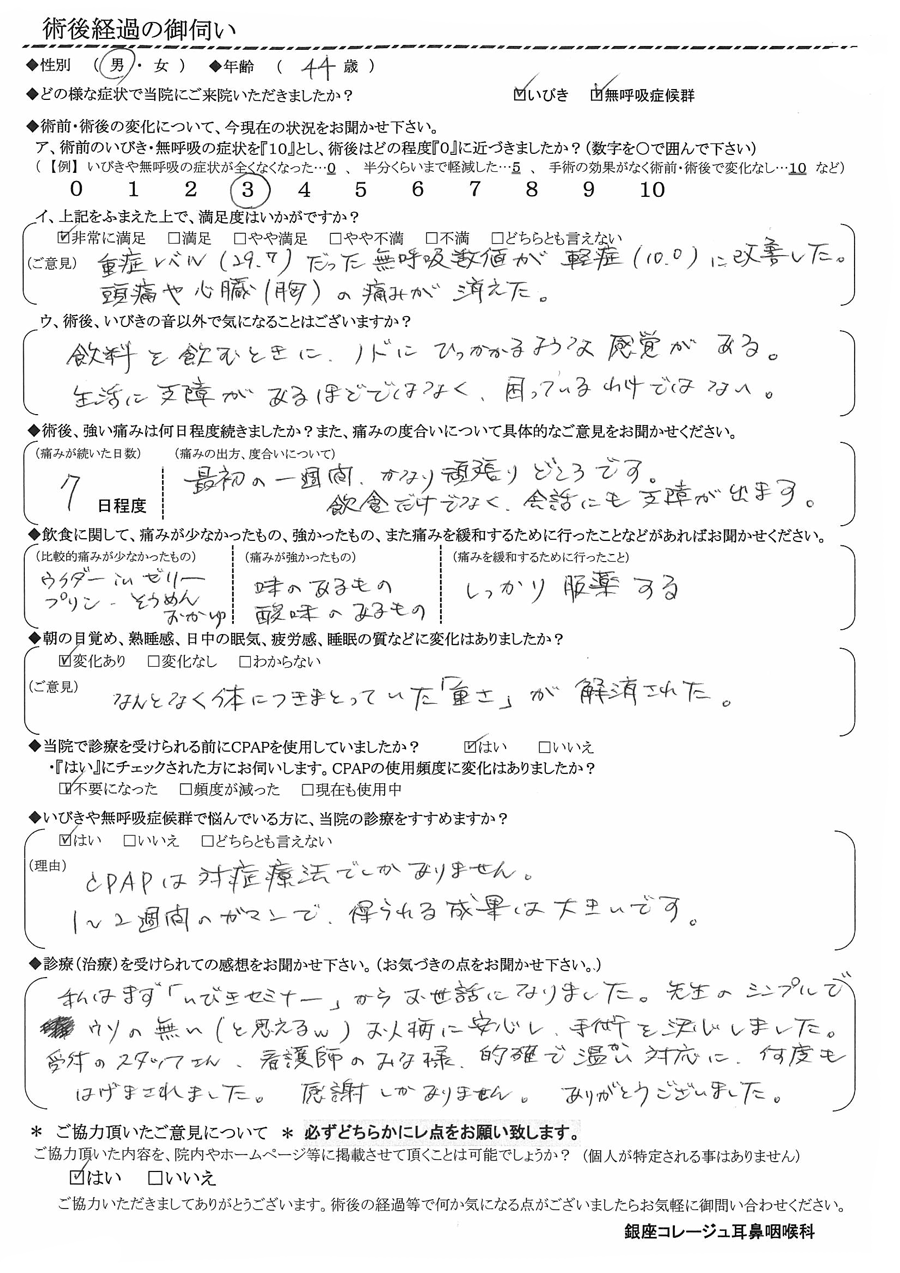 術後経過の御伺い
◆性別 （ 男 ・ 女 ） ◆年齢 （ 44 歳 ）
◆どの様な症状で当院にご来院いただきましたか？ ☑いびき ☑無呼吸症候群
◆術前・術後の変化について、今現在の状況をお聞かせ下さい。
ア、術前のいびき・無呼吸の症状を『10』とし、術後はどの程度『0』に近づきましたか？（数字を〇で囲んで下さい）
（【例】いびきや無呼吸の症状が全くなくなった…0 、 半分くらいまで軽減した…5 、 手術の効果がなく術前・術後で変化なし…10 など）
0 1 2 3 4 5 6 7 8 9 10
イ、上記をふまえた上で、満足度はいかがですか？
☑非常に満足 □満足 □やや満足 □やや不満 □不満 □どちらとも言えない
（ご意見） 重症レベル（29.7）だった無呼吸数値が軽症（10.0）に改善した。
頭痛や心臓（胸）の痛みが消えた。
ウ、術後、いびきの音以外で気になることはございますか？
飲料を飲むときに、ノドにひっかかるような感覚がある。
生活に支障があるほどではなく、困っているわけではない。
◆術後、強い痛みは何日程度続きましたか？また、痛みの度合いについて具体的なご意見をお聞かせください。
（痛みが続いた日数） （痛みの出方、度合いについて）
7 日程度 最初の一週間、かなり頑張りどころです。
飲食だけでなく、会話にも支障が出ます。
◆飲食に関して、痛みが少なかったもの、強かったもの、また痛みを緩和するために行ったことなどがあればお聞かせください。
（比較的痛みが少なかったもの） （痛みが強かったもの） （痛みを緩和するために行ったこと）
ウイダー in ゼリー 味のあるもの しっかり服薬する
プリン・そうめん 酸味のあるもの
おかゆ
◆朝の目覚め、熟睡感、日中の眠気、疲労感、睡眠の質などに変化はありましたか？
☑変化あり □変化なし □わからない
（ご意見） なんとなく体につきまとっていた「重さ」が解消された。
◆当院で診療を受けられる前にCPAPを使用していましたか？ ☑はい □いいえ
・『はい』にチェックされた方にお伺いします。CPAPの使用頻度に変化はありましたか？
☑不要になった □頻度が減った □現在も使用中
◆いびきや無呼吸症候群で悩んでいる方に、当院の診療をすすめますか？
☑はい □いいえ □どちらとも言えない
（理由） CPAPは対症療法でしかありません。
1〜2週間のガマンで、得られる成果は大きいです。
◆診療（治療）を受けられての感想をお聞かせ下さい。（お気づきの点をお聞かせ下さい。）
私はまず「いびきセミナー」からお世話になりました。先生のシンプルで
ウソの無い（と思えるw）お人柄に安心し、手術を決心しました。
受付のスタッフさん、看護師のみな様、的確で温かい対応に、何度も
はげまされました。 感謝しかありません。 ありがとうございました。
＊ ご協力頂いたご意見について ＊ 必ずどちらかにレ点をお願い致します。
ご協力頂いた内容を、院内やホームページ等に掲載させて頂くことは可能でしょうか？ （個人が特定される事はありません）
☑はい □いいえ
ご協力いただきましてありがとうございます。術後の経過等で何か気になる点がございましたらお気軽に御問い合わせください。
銀座コレージュ耳鼻咽喉科